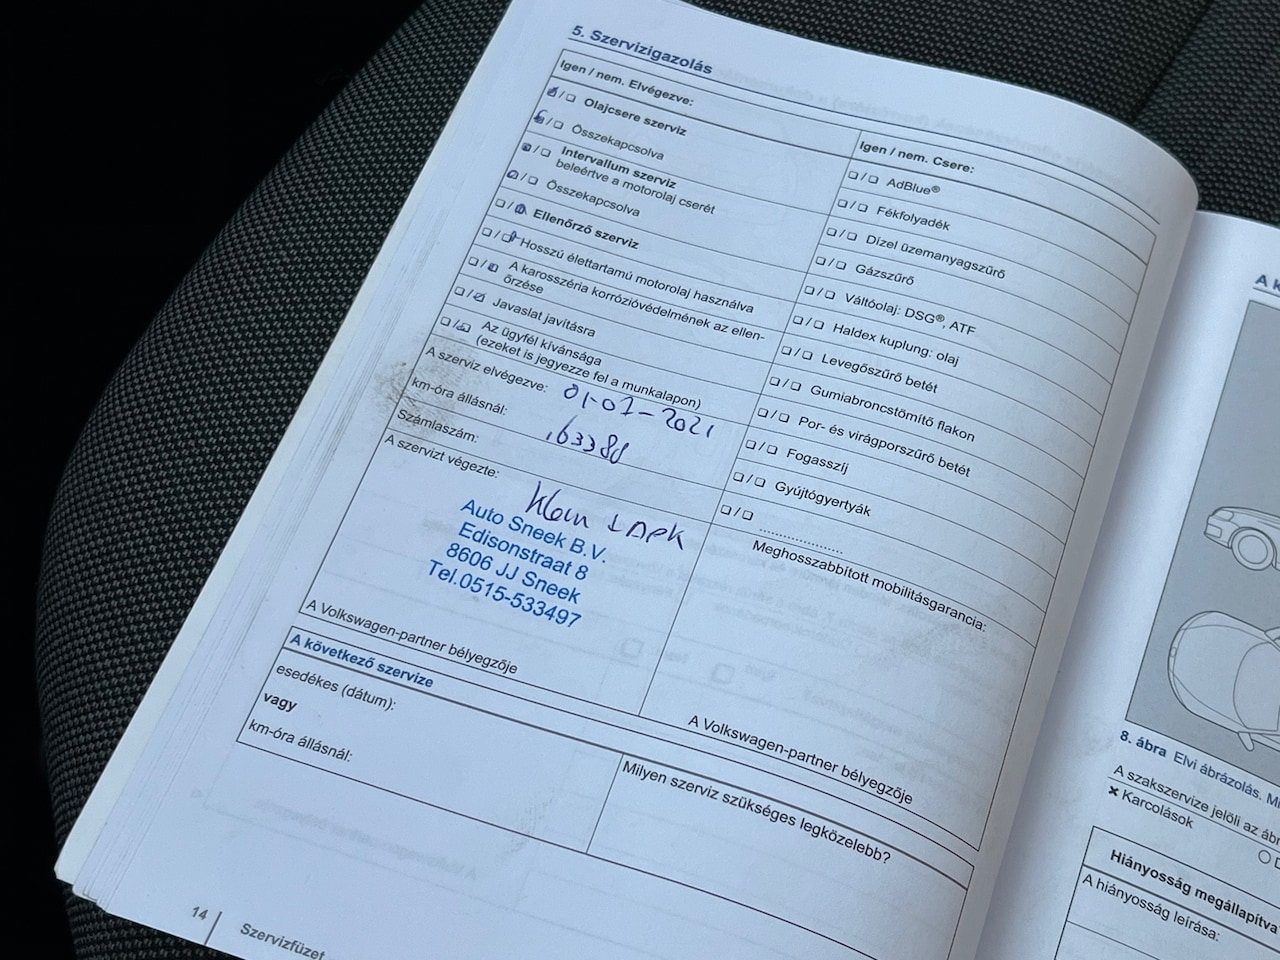 5. Szervizigazolás
Igen / nem. Elvégezve:
Olajcsere szerviz
Összekapcsolva
Intervallum szerviz
beleértve a motorolaj cserét
Összekapcsolva
Ellenőrző szerviz
Hosszú élettartamú motorolaj használva
A karosszéria korrózióvédelmének az ellen-
őrzése
Javaslat javításra
Az ügyfél kívánsága
(ezeket is jegyezze fel a munkalapon)
A szerviz elvégezve: 01-07-2021
km-óra állásnál: 163388
Számlaszám:
A szervizt végezte:
Auto Sneek B.V.
Edisonstraat 8
8606 JJ Sneek
Tel.0515-533497
A Volkswagen-partner bélyegzője
Igen / nem. Csere:
AdBlue®
Fékfolyadék
Dízel üzemanyagszűrő
Gázszűrő
Váltóolaj: DSG®, ATF
Haldex kuplung: olaj
Levegőszűrő betét
Gumiabroncstömítő flakon
Por- és virágporszűrő betét
Fogasszíj
Gyújtógyertyák
Meghosszabbított mobilitásgarancia:
A Volkswagen-partner bélyegzője
A következő szervize
esedékes (dátum):
vagy
km-óra állásnál:
Milyen szerviz szükséges legközelebb?
14
Szervizfüzet
8. ábra Elvi ábrázolás.
A szakszervize jelöli az
Karcolások
Hiányosság
A hiányosság leírása: